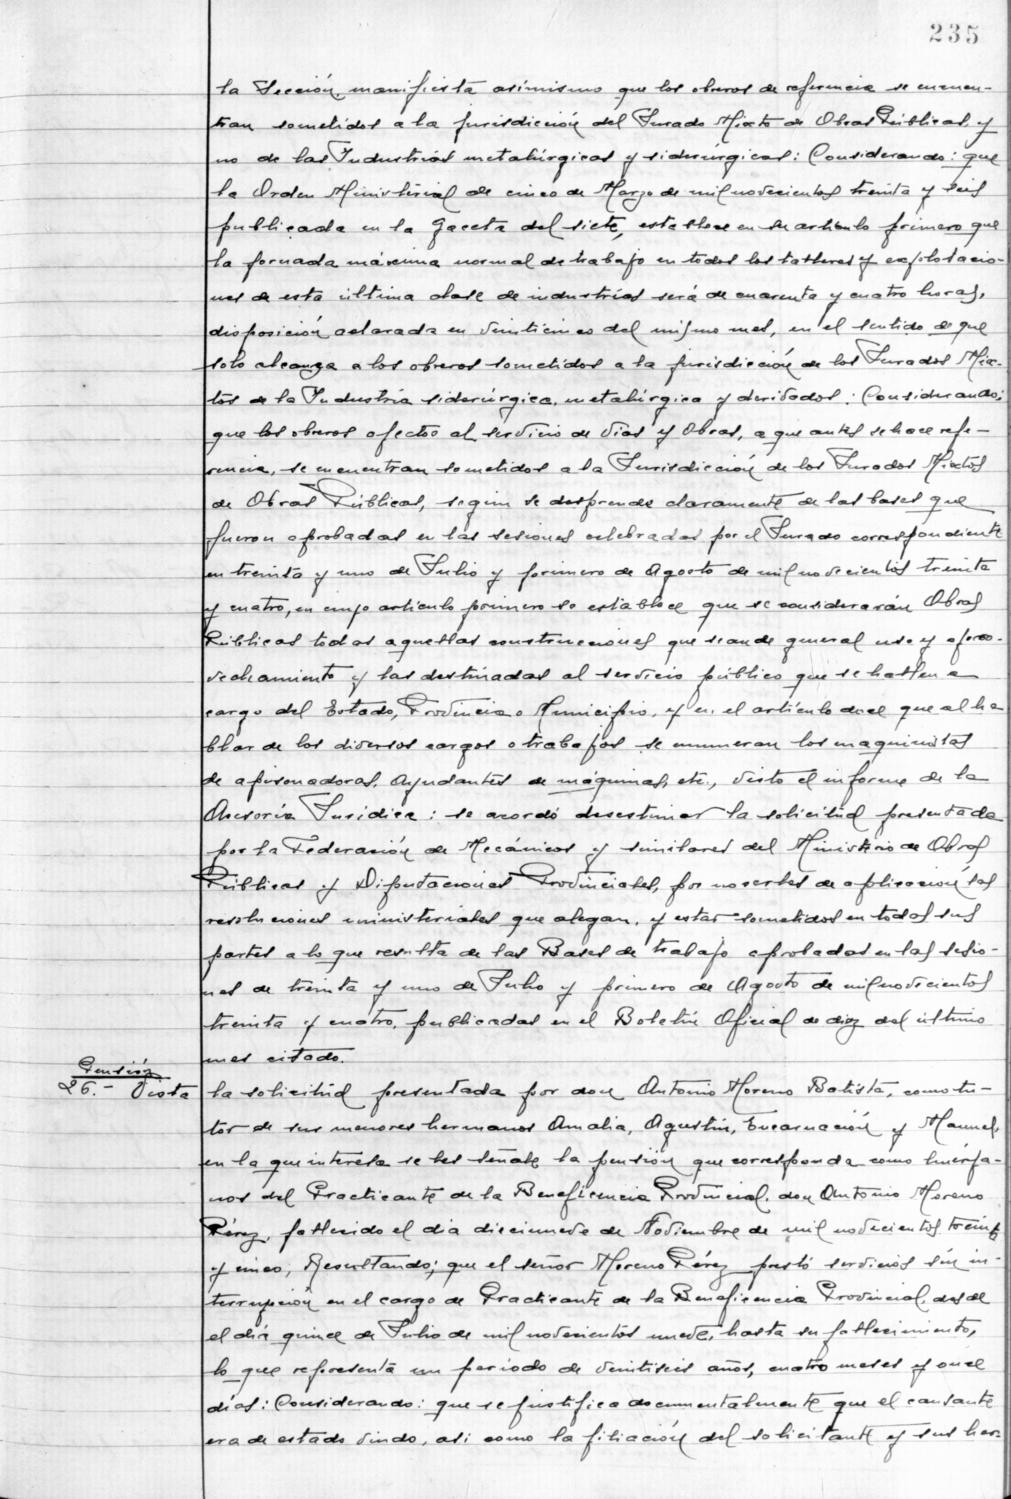 235
la Sección, manifiesta asimismo que los obreros de referencia se encuen-
tran sometidos a la jurisdicción del Jurado Mixto de Obras Públicas y
no de las Industrias metalúrgicas y siderúrgicas: Considerando: que
la Orden Ministerial de cinco de Marzo de mil novecientos treinta y seis
publicada en la Gaceta del siete, establece en su artículo primero que
la jornada máxima normal de trabajo en todos los talleres y explotacio-
nes de esta última clase de industrias será de cuarenta y cuatro horas,
disposición aclarada en veinticinco del mismo mes, en el sentido de que
solo alcanza a los obreros sometidos a la jurisdicción de los Jurados Mix-
tos de la Industria siderúrgica, metalúrgica y derivados: Considerando:
que los obreros afectos al servicio de Vías y Obras, a que antes se hace refe-
rencia, se encuentran sometidos a la Jurisdicción de los Jurados Mixtos
de Obras Públicas, según se desprende claramente de las bases que
fueron aprobadas en las sesiones celebradas por el Jurado correspondiente
en treinta y uno de Julio y primero de Agosto de mil novecientos treinta
y cuatro, en cuyo artículo primero se establece que se considerarán Obras
Públicas todas aquellas construcciones que sean de general uso y apro-
vechamiento y las destinadas al servicio público que se hallen a
cargo del Estado, Provincia o Municipio, y en el artículo doce que al ha
blar de los diversos cargos o trabajos se enumeran los maquinistas
de apisonadoras, Ayudantes de máquinas, etc., visto el informe de la
Asesoría Jurídica: se acordó desestimar la solicitud presentada
por la Federación de Mecánicos y similares del Ministerio de Obras
Públicas y Diputaciones Provinciales, por no serles de aplicación las
resoluciones ministeriales que alegan, y estar sometidos en todas sus
partes a lo que resulta de las Bases de trabajo aprobadas en las sesio-
nes de treinta y uno de Julio y primero de Agosto de mil novecientos
treinta y cuatro, publicadas en el Boletín Oficial de diez del último
mes citado.
Pensión
26.- Vista la solicitud presentada por don Antonio Moreno Batista, como tu-
tor de sus menores hermanos Amalia, Agustín, Encarnación y Manuel,
en la que interesa se les señale la pensión que corresponda como huérfa-
nos del Practicante de la Beneficencia Provincial, don Antonio Moreno
Pérez, fallecido el día diecinueve de Noviembre de mil novecientos treinta
y cinco; Resultando; que el señor Moreno Pérez prestó servicios sin in-
terrupción en el cargo de Practicante de la Beneficencia Provincial, desde
el día quince de Julio de mil novecientos nueve, hasta su fallecimiento,
lo que representa un período de veintiseis años, cuatro meses y once
días: Considerando: que se justifica documentalmente que el causante
era de estado viudo, asi como la filiación del solicitante y sus her-